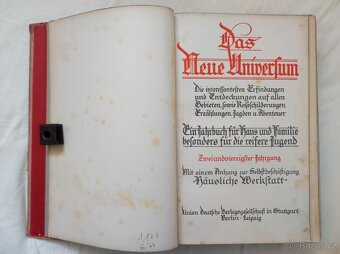 Das
Neue Universum
Die interessantesten Erfindungen
und Entdeckungen auf allen
Gebieten, sowie Reiseschilderungen
Erzählungen, Jagden u. Abenteuer
Ein Jahrbuch für Haus und Familie
besonders für die reifere Jugend
Zweiundvierzigster Jahrgang
Mit einem Anhang zur Selbstbeschäftigung
-Häusliche Werkstatt-
Union Deutsche Verlagsgesellschaft in Stuttgart-
Berlin-Leipzig